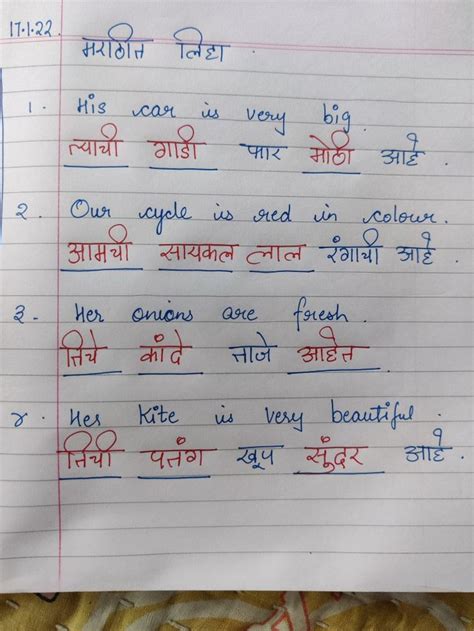 17.1.22.
मराठीत लिहा.
१. His car is very big.
त्याची गाडी फार मोठी आहे.
२. Our cycle is red in colour.
आमची सायकल लाल रंगाची आहे.
३. Her onions are fresh.
तिचे कांदे ताजे आहेत.
४. Her kite is very beautiful.
तिची पतंग खूप सुंदर आहे.